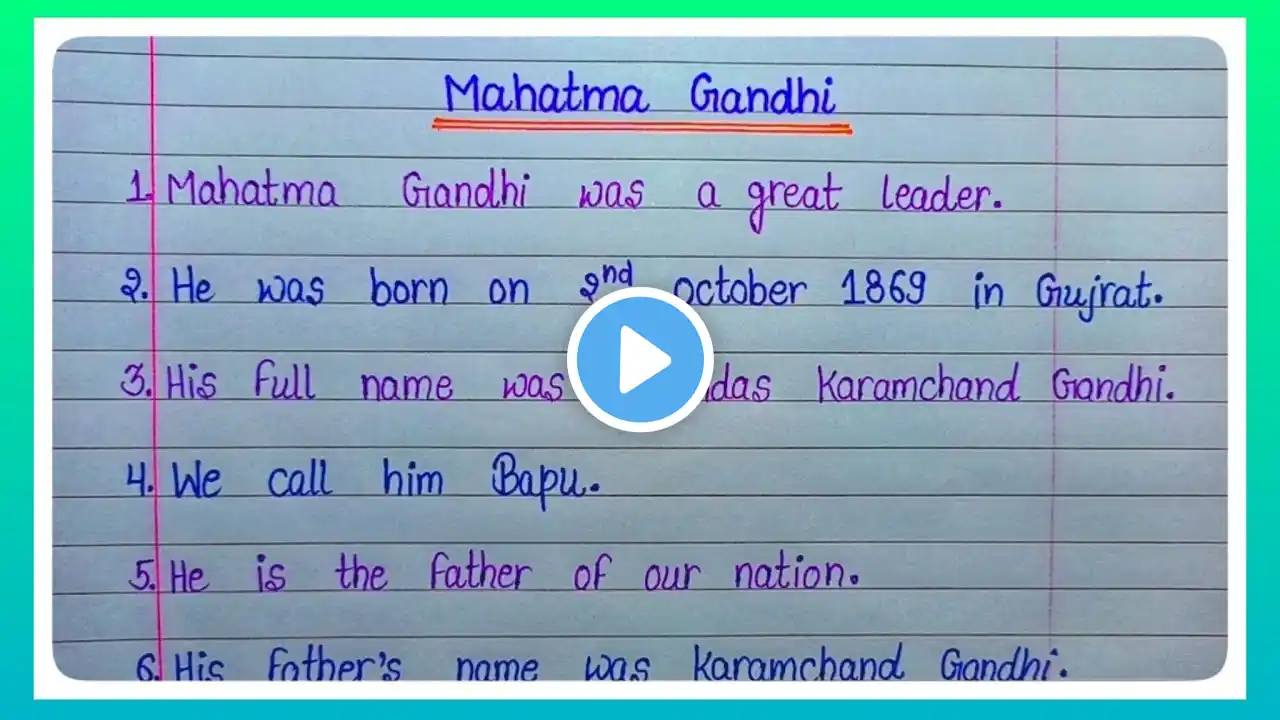 Mahatma Gandhi
1. Mahatma Gandhi was a great leader.
2. He was born on 2nd october 1869 in Gujrat.
3. His full name was das Karamchand Gandhi.
4. We call him Bapu.
5. He is the father of our nation.
6. His father's name was Karamchand Gandhi.